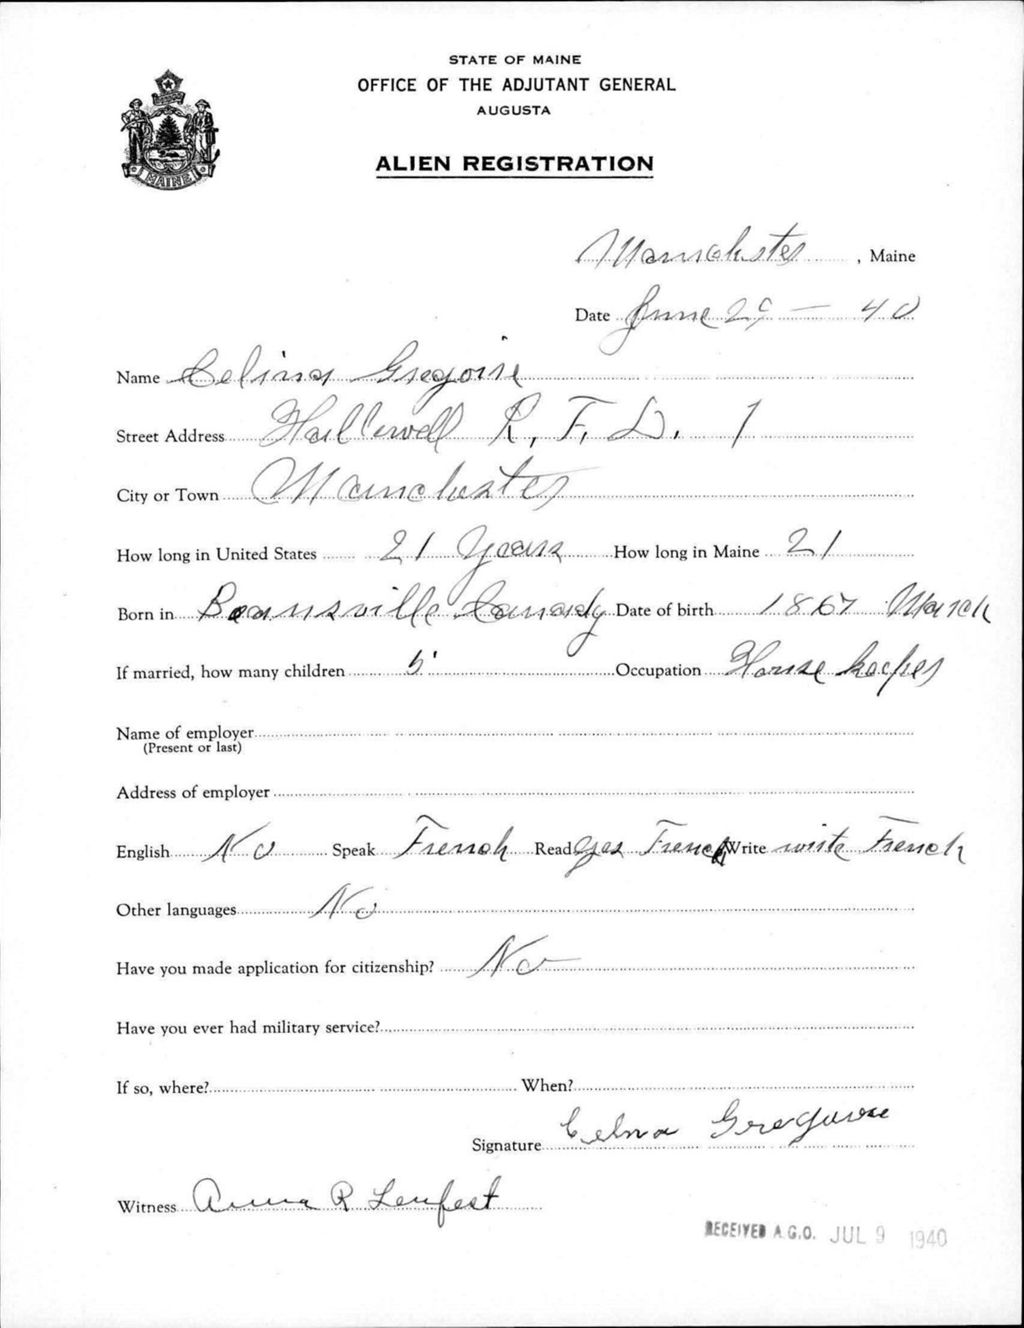 STATE OF MAINE
OFFICE OF THE ADJUTANT GENERAL
AUGUSTA
ALIEN REGISTRATION
MAINE
Manchester, Maine
Date June 29 - 40
Name Celina Gregoire
Street Address Hallowell R. F. D. 1
City or Town Manchester
How long in United States 21 Years How long in Maine 21
Born in Canady Date of birth 1867 March
If married, how many children 5 Occupation House keeper
Name of employer
(Present or last)
Address of employer
English No Speak French Read yes French Write write French
Other languages No
Have you made application for citizenship? No
Have you ever had military service?
If so, where? When?
Signature Celina Gregoire
Witness Anna R Lenfest
RECEIVED A.G.O. JUL 9 1940